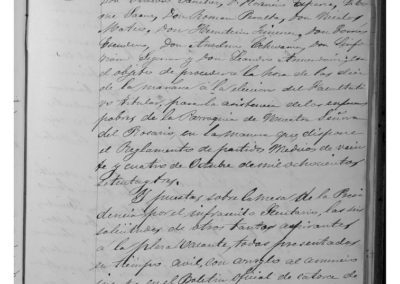 que Sanz, Don Roman Peralta, Don Nicolas
Mateo, Don Florentin Jimeno, Don Tomás
Escudero, Don Anselmo, Don
y Don Leandro con
objeto de proceder a la hora de las diez
de la mañana a la eleccion del Facultati
vo titular, para la asistencia de los enfermos
pobres de la Parroquia de Nuestra Señora
del Rosario, en la manera que dispone
el Reglamento de partidos Medicos de vein
te y cuatro de Octubre de mil ochocientos
setenta y tres.
Y puestas sobre la mesa de la Presi
dencia por el infrascrito Secretario, las seis
solicitudes de otros tantos aspirantes
a la plaza vacante, todas presentadas
en tiempo avil, con arreglo al anuncio
en el Boletin Oficial de catorce de